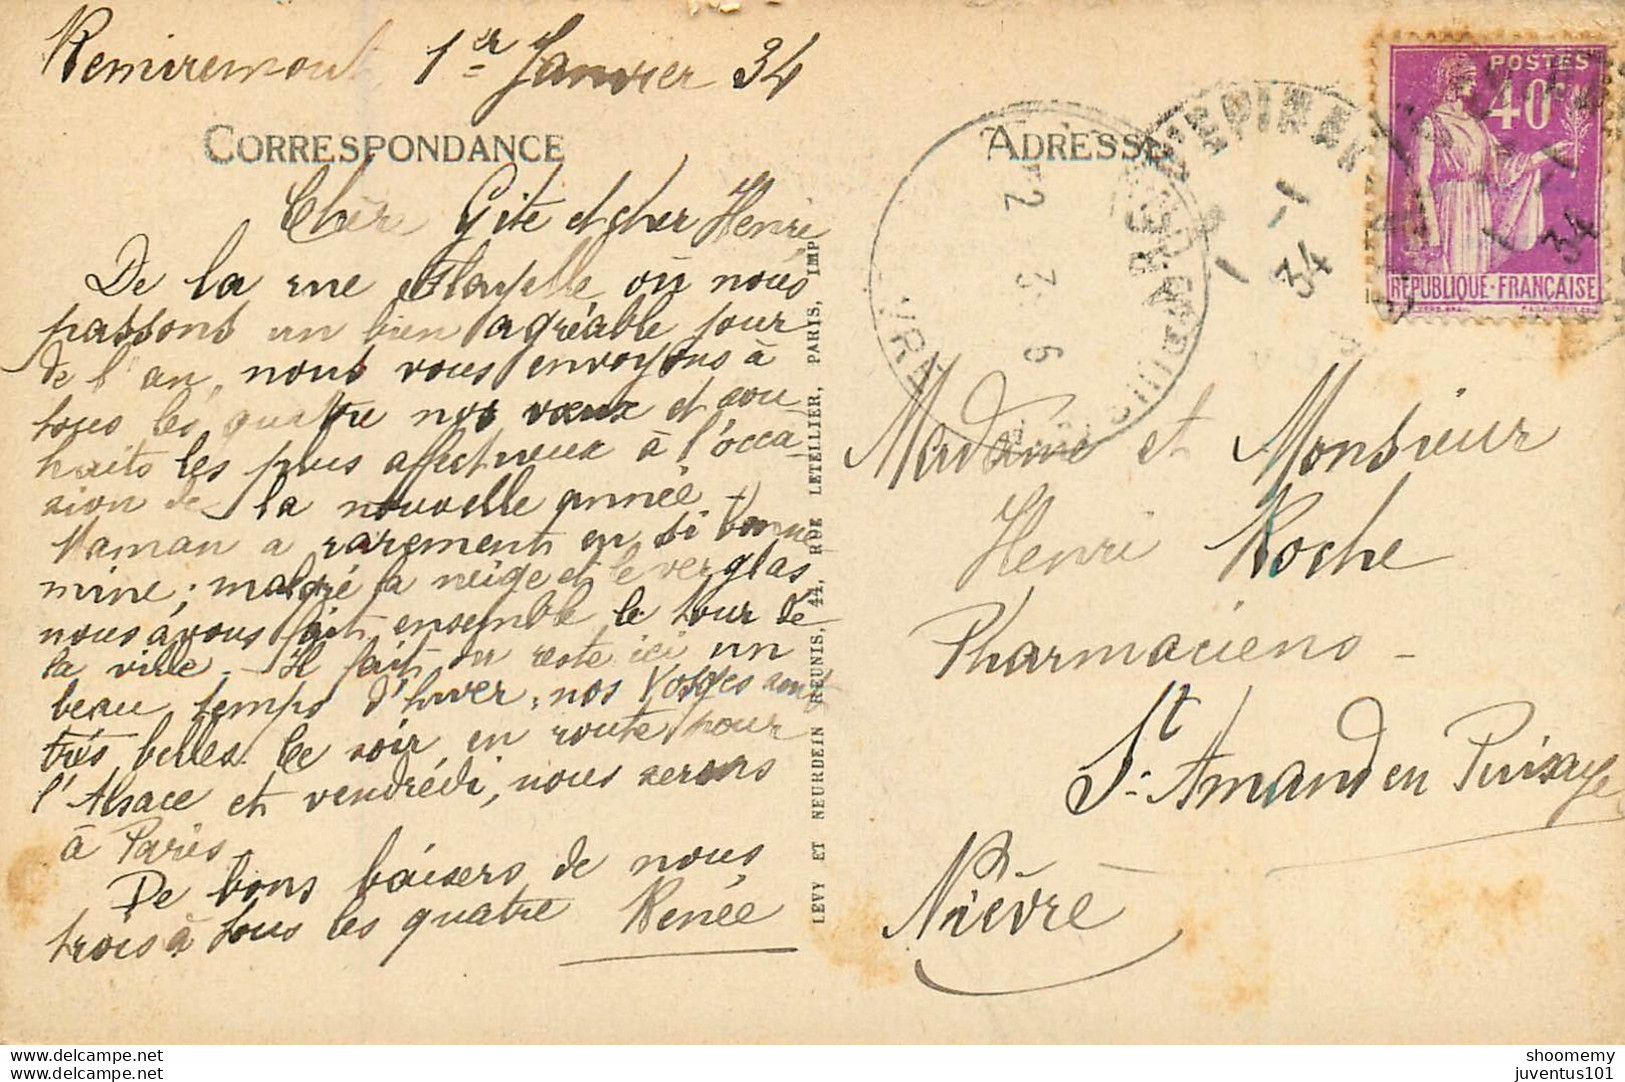 Remiremont 1er Janvier 34
CORRESPONDANCE
Chère Gite et cher Henri
De la rue où nous
passons un bien agréable jour
de l'an, nous vous envoyons à
tous les quatre nos vœux et sou
haits les plus affectueux à l'occa-
sion de la nouvelle année.
Maman a rarement eu si bonne
mine; malgré la neige et le verglas
nous avons fait ensemble le tour de
la ville. Il fait du reste ici un
beau temps d'hiver, nos Vosges sont
très belles. Ce soir, en route pour
l'Alsace et vendrédi, nous serons
à Paris.
De bons baisers de nous
trois à tous les quatre Renée
LEVY ET NEURDEIN REUNIS, 44, RUE LETELLIER, PARIS, IMP
ADRESSE
POSTES
40c
REPUBLIQUE-FRANÇAISE
1-1
34
1-1
34
Madame et Monsieur
Henri Roche
Pharmaciens -
St. Amand en Puisaye
Nièvre
www.delcampe.net
shoomemy
juventus101